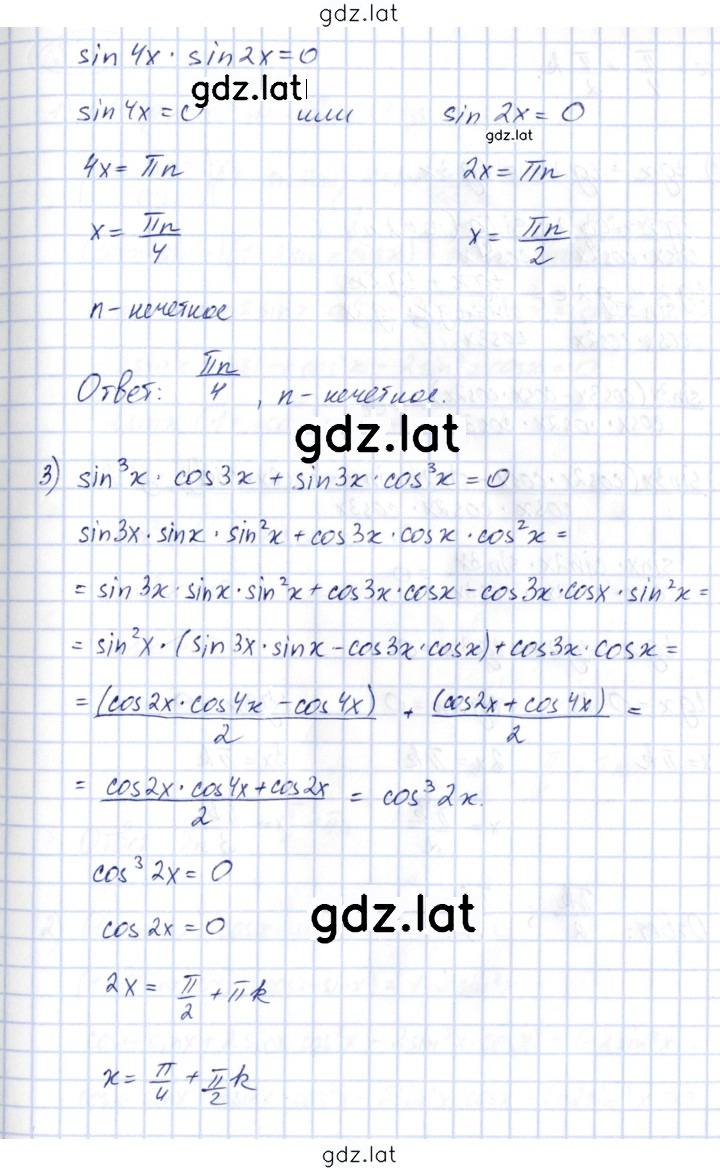 gdz.lat
sin 4x · sin 2x = 0
gdz.lat
sin 4x = 0 или sin 2x = 0
gdz.lat
4x = πn 2x = πn
x = πn/4 x = πn/2
n - нечетное
Ответ: πn/4, n - нечетное.
gdz.lat
3) sin³x · cos3x + sin3x · cos³x = 0
sin3x · sinx · sin²x + cos3x · cosx · cos²x =
= sin3x · sinx · sin²x + cos3x · cosx - cos3x · cosx · sin²x =
= sin²x · (sin3x · sinx - cos3x · cosx) + cos3x · cosx =
= (cos2x · cos4x - cos4x)/2 + (cos2x + cos4x)/2 =
= cos2x · cos4x + cos2x/2 = cos³2x.
cos³2x = 0
gdz.lat
cos2x = 0
2x = π/2 + πk
x = π/4 + π/2 k
gdz.lat